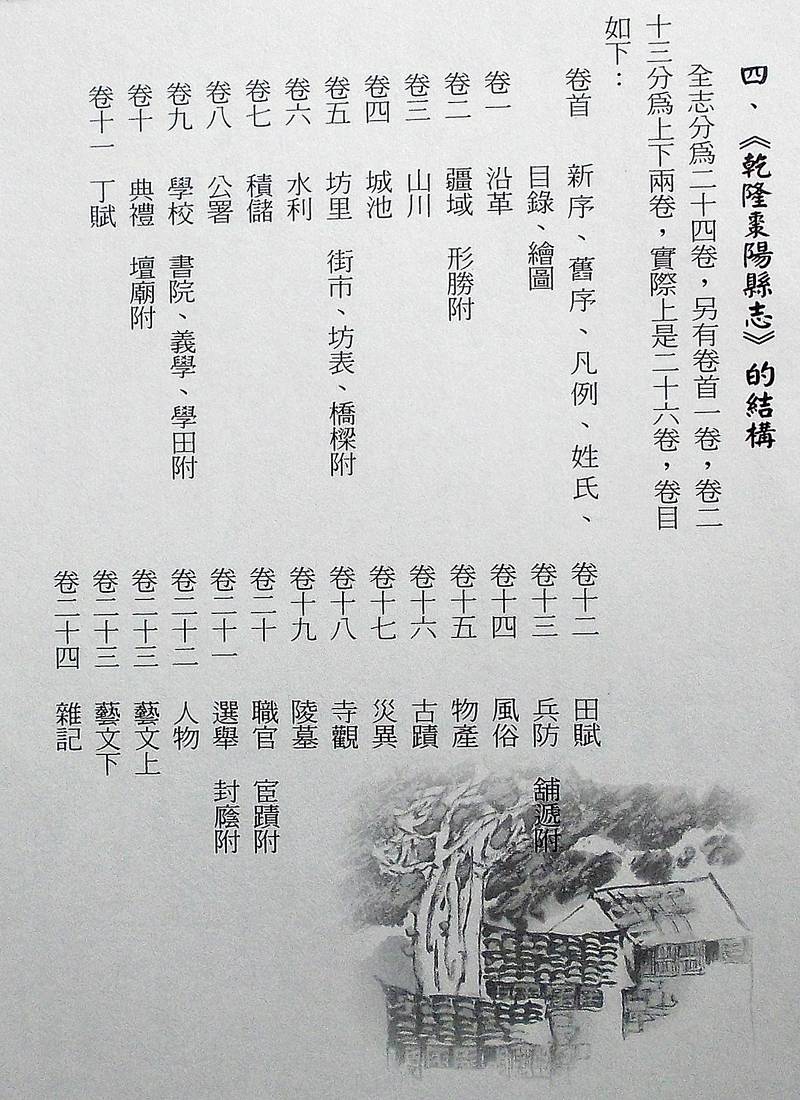 四、《乾隆棗陽縣志》的結構
全志分爲二十四卷，另有卷首一卷，卷二
十三分爲上下兩卷，實際上是二十六卷，卷目
如下：
卷首 新序、舊序、凡例、姓氏、
目錄、繪圖
卷一 沿革
卷二 疆域 形勝附
卷三 山川
卷四 城池
卷五 坊里 街市、坊表、橋樑附
卷六 水利
卷七 積儲
卷八 公署
卷九 學校 書院、義學、學田附
卷十 典禮 壇廟附
卷十一 丁賦
卷十二 田賦
卷十三 兵防 舖遞附
卷十四 風俗
卷十五 物產
卷十六 古蹟
卷十七 災異
卷十八 寺觀
卷十九 陵墓
卷二十 職官 宦蹟附
卷二十一 選舉 封廕附
卷二十二 人物
卷二十三 藝文上
卷二十三 藝文下
卷二十四 雜記